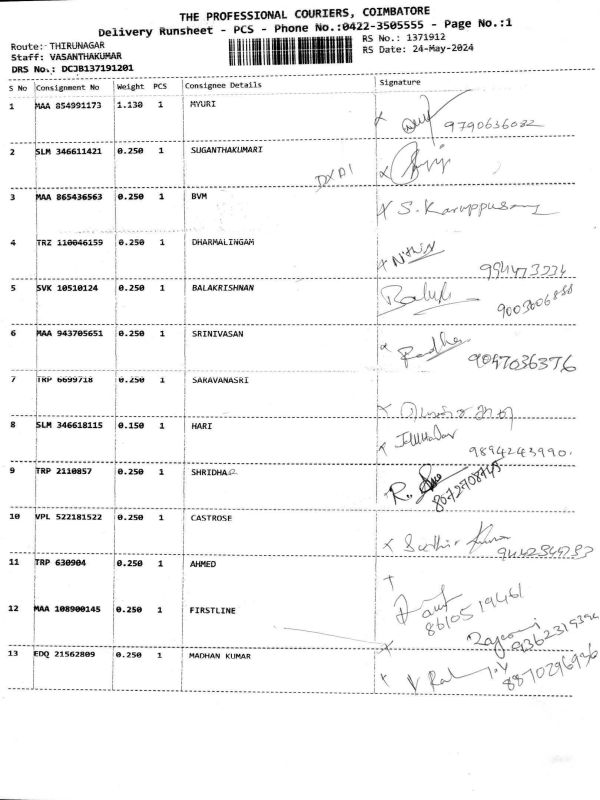 THE PROFESSIONAL COURIERS, COIMBATORE
Delivery Runsheet - PCS - Phone No.:0422-3505555 - Page No.:1
Route:- THIRUNAGAR
Staff: VASANTHAKUMAR
DRS No.: DCJB137191201
RS No.: 1371912
RS Date: 24-May-2024
S No Consignment No Weight PCS Consignee Details Signature
1 MAA 854991173 1.130 1 MYURI
9790636082
2 SLM 346611421 0.250 1 SUGANTHAKUMARI
3 MAA 865436563 0.250 1 BVM
4 TRZ 110046159 0.250 1 DHARMALINGAM
5 SVK 10510124 0.250 1 BALAKRISHNAN
6 MAA 943705651 0.250 1 SRINIVASAN
9047036376
7 TRP 6699718 0.250 1 SARAVANASRI
8 SLM 346618115 0.150 1 HARI
9894243990.
9 TRP 2110857 0.250 1 SHRIDHAR
8072708745
10 VPL 522181522 0.250 1 CASTROSE
11 TRP 630904 0.250 1 AHMED
8610519461
12 MAA 108900145 0.250 1 FIRSTLINE
9362319394
13 EDQ 21562809 0.250 1 MADHAN KUMAR